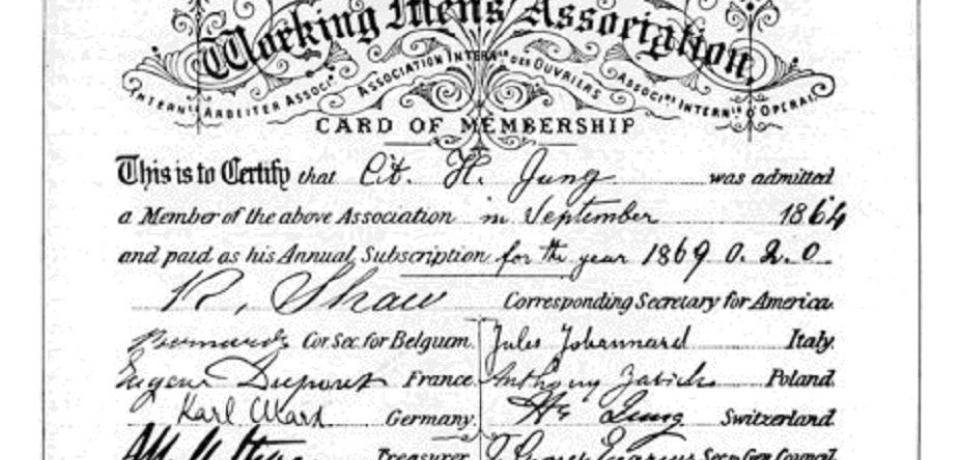 Working Men's Association.
INTERN^LE ARBEITER ASSOC^N ASSOCIATION INTERN^LE DES OUVRIERS ASSOCI^NE INTERN^LE D'OPERAI
CARD OF MEMBERSHIP
This is to Certify that Cit. H. Jung was admitted
a Member of the above Association in September 1864
and paid as his Annual Subscription for the year 1869 0. 2. 0.
R. Shaw Corresponding Secretary for America.
Bernard Cor. Sec. for Belgium. Jules Johannard Italy.
Eugene Dupont France. Anthony Zabicki Poland.
Karl Marx Germany. H. Jung Switzerland.
Treasurer. Eccarius Sec. Gen. Council.